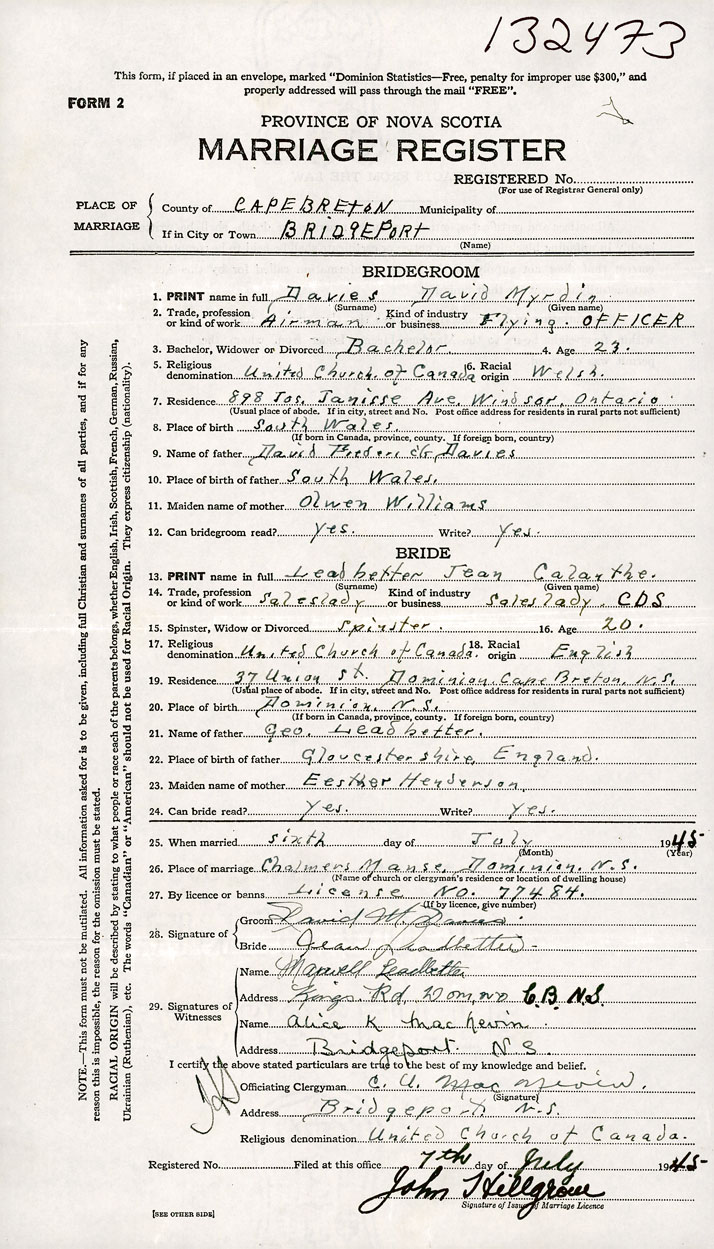 132473
This form, if placed in an envelope, marked "Dominion Statistics—Free, penalty for improper use $300," and
properly addressed will pass through the mail "FREE".
FORM 2
PROVINCE OF NOVA SCOTIA
MARRIAGE REGISTER
REGISTERED No.
(For use of Registrar General only)
PLACE OF MARRIAGE
County of CAPE BRETON Municipality of
If in City or Town BRIDGEPORT
(Name)
BRIDEGROOM
1. PRINT name in full Davies David Myrdin
(Surname) (Given name)
2. Trade, profession or kind of work Airman Kind of industry or business Flying. OFFICER
3. Bachelor, Widower or Divorced Bachelor. 4. Age 23.
5. Religious denomination United Church of Canada 6. Racial origin Welsh.
7. Residence 898 Jos. Janisse Ave. Windsor, Ontario
(Usual place of abode. If in city, street and No. Post office address for residents in rural parts not sufficient)
8. Place of birth South Wales.
(If born in Canada, province, county. If foreign born, country)
9. Name of father David Frederick Davies
10. Place of birth of father South Wales.
11. Maiden name of mother Olwen Williams
12. Can bridegroom read? Yes. Write? Yes.
BRIDE
13. PRINT name in full Leadbetter Jean Calanthe.
(Surname) (Given name)
14. Trade, profession or kind of work Saleslady Kind of industry or business Saleslady. CDS
15. Spinster, Widow or Divorced Spinster. 16. Age 20.
17. Religious denomination United Church of Canada. 18. Racial origin English
19. Residence 37 Union St. Dominion, Cape Breton, N.S.
(Usual place of abode. If in city, street and No. Post office address for residents in rural parts not sufficient)
20. Place of birth Dominion, N.S.
(If born in Canada, province, county. If foreign born, country)
21. Name of father Geo. Leadbetter.
22. Place of birth of father Gloucestershire, England.
23. Maiden name of mother Eesther Henderson
24. Can bride read? Yes. Write? Yes.
25. When married sixth day of July 1945
(Month) (Year)
26. Place of marriage Chalmers Manse, Dominion, N.S.
(Name of church or clergyman's residence or location of dwelling house)
27. By licence or banns License No. 77484.
(If by licence, give number)
28. Signature of
Groom David M. Davies
Bride Jean Leadbetter
29. Signatures of Witnesses
Name Maxwell Leadbetter
Address Kings Rd Domno C.B. N.S.
Name Alice K MacNevin
Address Bridgeport N S.
I certify the above stated particulars are true to the best of my knowledge and belief.
Officiating Clergyman C. U. MacNevin.
(Signature)
Address Bridgeport N.S.
Religious denomination United Church of Canada.
Registered No. Filed at this office 7th day of July 1945
John Hillgrove
Signature of Issuer of Marriage Licence
[SEE OTHER SIDE]
NOTE.—This form must not be mutilated. All information asked for is to be given, including full Christian and surnames of all parties, and if for any
reason this is impossible, the reason for the omission must be stated.
RACIAL ORIGIN will be described by stating to what people or race each of the parents belongs, whether English, Irish, Scottish, French, German, Russian,
Ukrainian (Ruthenian), etc. The words "Canadian" or "American" should not be used for Racial Origin. They express citizenship (nationality).